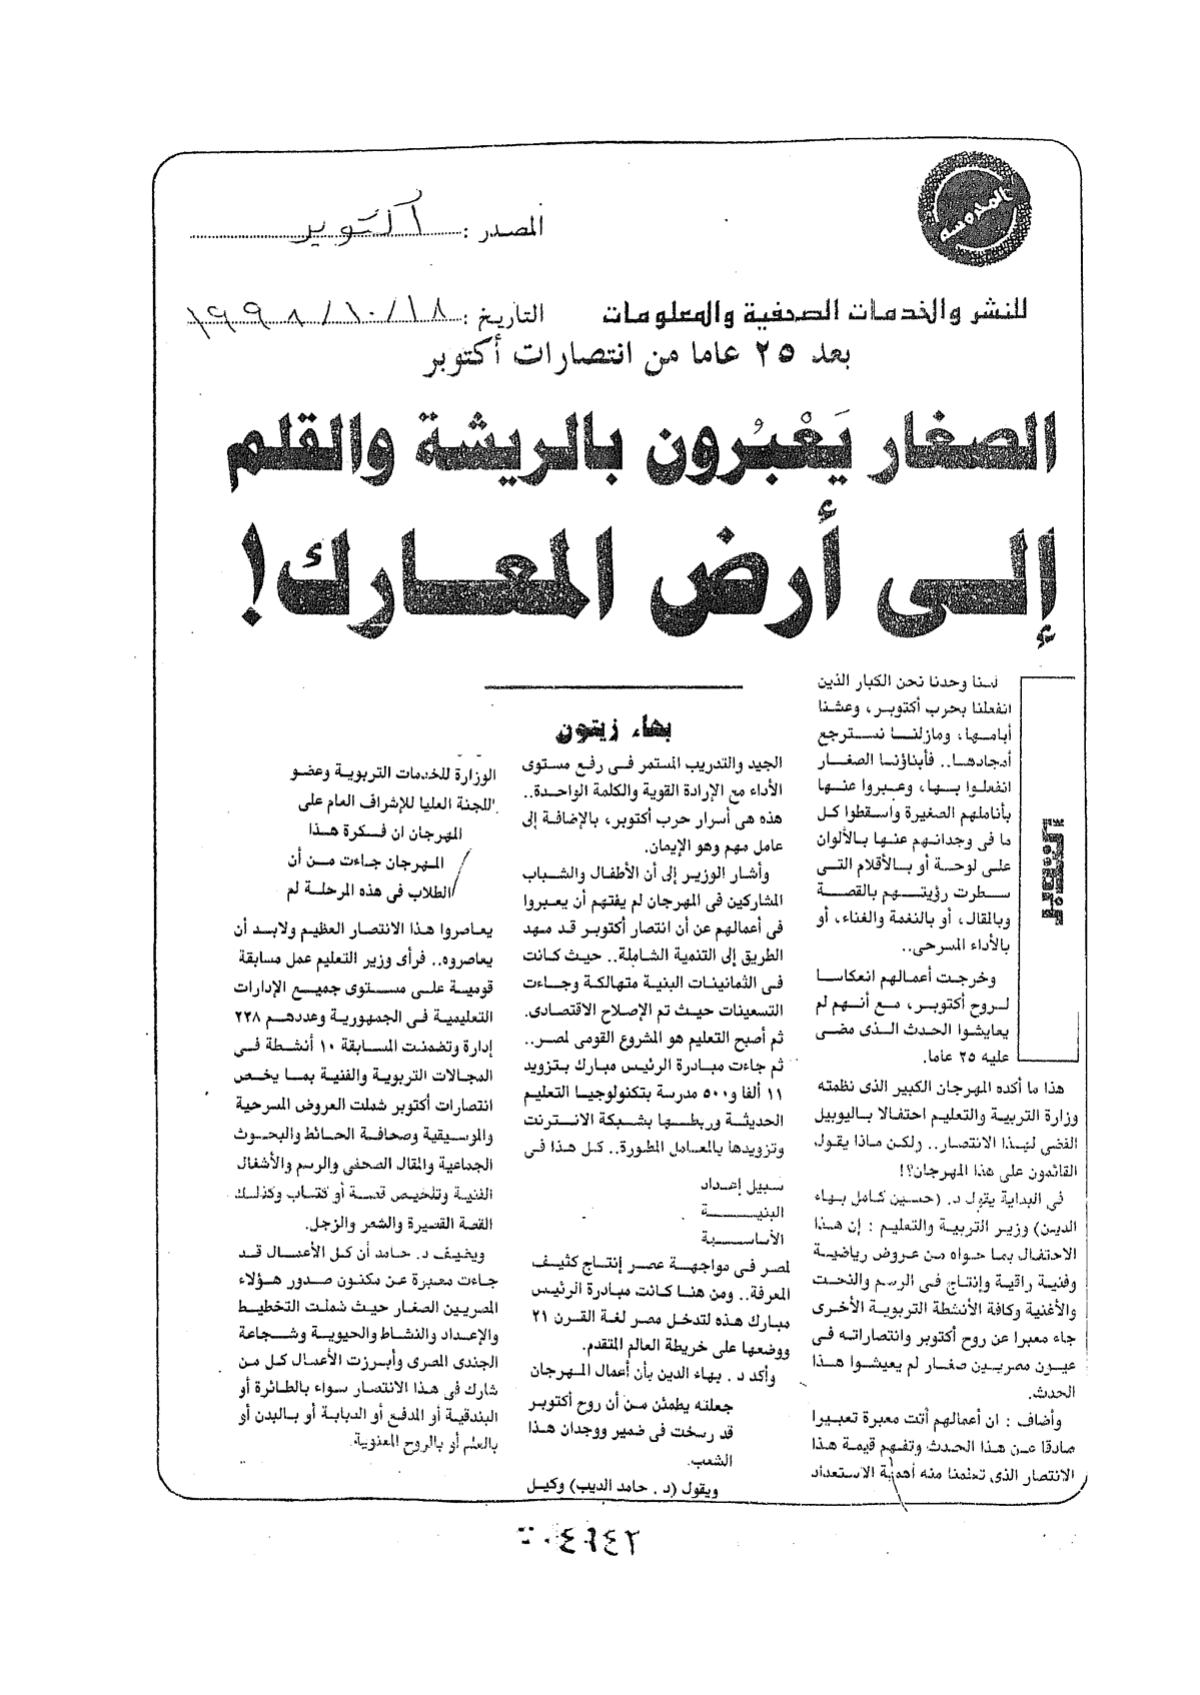 المدرسة
المصدر : أكتوبر
للنشر والخدمات الصحفية والمعلومات
التاريخ : ١٨/١٠/١٩٩٨
بعد ٢٥ عاما من انتصارات أكتوبر
الصغار يَعْبُرون بالريشة والقلم
إلى أرض المعارك!
لسنا وحدنا نحن الكبار الذين
انفعلنا بحرب أكتوبر، وعشنا
أيامها، ومازلنا نسترجع
أمجادها.. فأبناؤنا الصغار
انفعلوا بها، وعبروا عنها
بأناملهم الصغيرة وأسقطوا كل
ما فى وجدانهم عنها بالألوان
على لوحة أو بالأقلام التى
سطرت رؤيتهم بالقصة
وبالمقال، أو بالنغمة والغناء، أو
بالأداء المسرحى..
وخرجت أعمالهم انعكاسا
لروح أكتوبر، مع أنهم لم
يعايشوا الحدث الذى مضى
عليه ٢٥ عاما.
هذا ما أكده المهرجان الكبير الذى نظمته
وزارة التربية والتعليم احتفالا باليوبيل
الفضى لهذا الانتصار.. ولكن ماذا يقول
القائمون على هذا المهرجان؟!
فى البداية يقول د. (حسين كامل بهاء
الدين) وزير التربية والتعليم : إن هذا
الاحتفال بما حواه من عروض رياضية
وفنية راقية وإنتاج فى الرسم والنحت
والأغنية وكافة الأنشطة التربوية الأخرى
جاء معبرا عن روح أكتوبر وانتصاراته فى
عيون مصريين صغار لم يعيشوا هذا
الحدث.
وأضاف : ان أعمالهم أتت معبرة تعبيرا
صادقا عن هذا الحدث وتفهم قيمة هذا
الانتصار الذى تعلمنا منه أهمية الاستعداد
بهاء زيتون
الجيد والتدريب المستمر فى رفع مستوى
الأداء مع الإرادة القوية والكلمة الواحدة..
هذه هى أسرار حرب أكتوبر، بالإضافة إلى
عامل مهم وهو الإيمان.
وأشار الوزير إلى أن الأطفال والشباب
المشاركين فى المهرجان لم يفتهم أن يعبروا
فى أعمالهم عن أن انتصار أكتوبر قد مهد
الطريق إلى التنمية الشاملة.. حيث كانت
فى الثمانينات البنية متهالكة وجاءت
التسعينات حيث تم الإصلاح الاقتصادى.
ثم أصبح التعليم هو المشروع القومى لمصر..
ثم جاءت مبادرة الرئيس مبارك بتزويد
١١ ألفا و٥٠٠ مدرسة بتكنولوجيا التعليم
الحديثة وربطها بشبكة الانترنت
وتزويدها بالمعامل المطورة.. كل هذا فى
سبيل إعداد
البنية
الأساسية
لمصر فى مواجهة عصر إنتاج كثيف
المعرفة.. ومن هنا كانت مبادرة الرئيس
مبارك هذه لتدخل مصر لغة القرن ٢١
ووضعها على خريطة العالم المتقدم.
وأكد د . بهاء الدين بأن أعمال المهرجان
جعلته يطمئن من أن روح أكتوبر
قد رسخت فى ضمير ووجدان هذا
الشعب.
ويقول (د . حامد الديب) وكيل
الوزارة للخدمات التربوية وعضو
اللجنة العليا للإشراف العام على
المهرجان ان فكرة هذا
المهرجان جاءت من أن
الطلاب فى هذه المرحلة لم
يعاصروا هذا الانتصار العظيم ولابد أن
يعاصروه.. فرأى وزير التعليم عمل مسابقة
قومية على مستوى جميع الإدارات
التعليمية فى الجمهورية وعددهم ٢٢٨
إدارة وتضمنت المسابقة ١٠ أنشطة فى
المجالات التربوية والفنية بما يخص
انتصارات أكتوبر شملت العروض المسرحية
والموسيقية وصحافة الحائط والبحوث
الجماعية والمقال الصحفى والرسم والأشغال
الفنية وتلخيص قصة أو كتاب وكذلك
القصة القصيرة والشعر والزجل.
ويضيف د. حامد أن كل الأعمال قد
جاءت معبرة عن مكنون صدور هؤلاء
المصريين الصغار حيث شملت التخطيط
والإعداد والنشاط والحيوية وشجاعة
الجندى المصرى وأبرزت الأعمال كل من
شارك فى هذا الانتصار سواء بالطائرة أو
البندقية أو المدفع أو الدبابة أو بالبدن أو
بالعلم أو بالروح المعنوية.